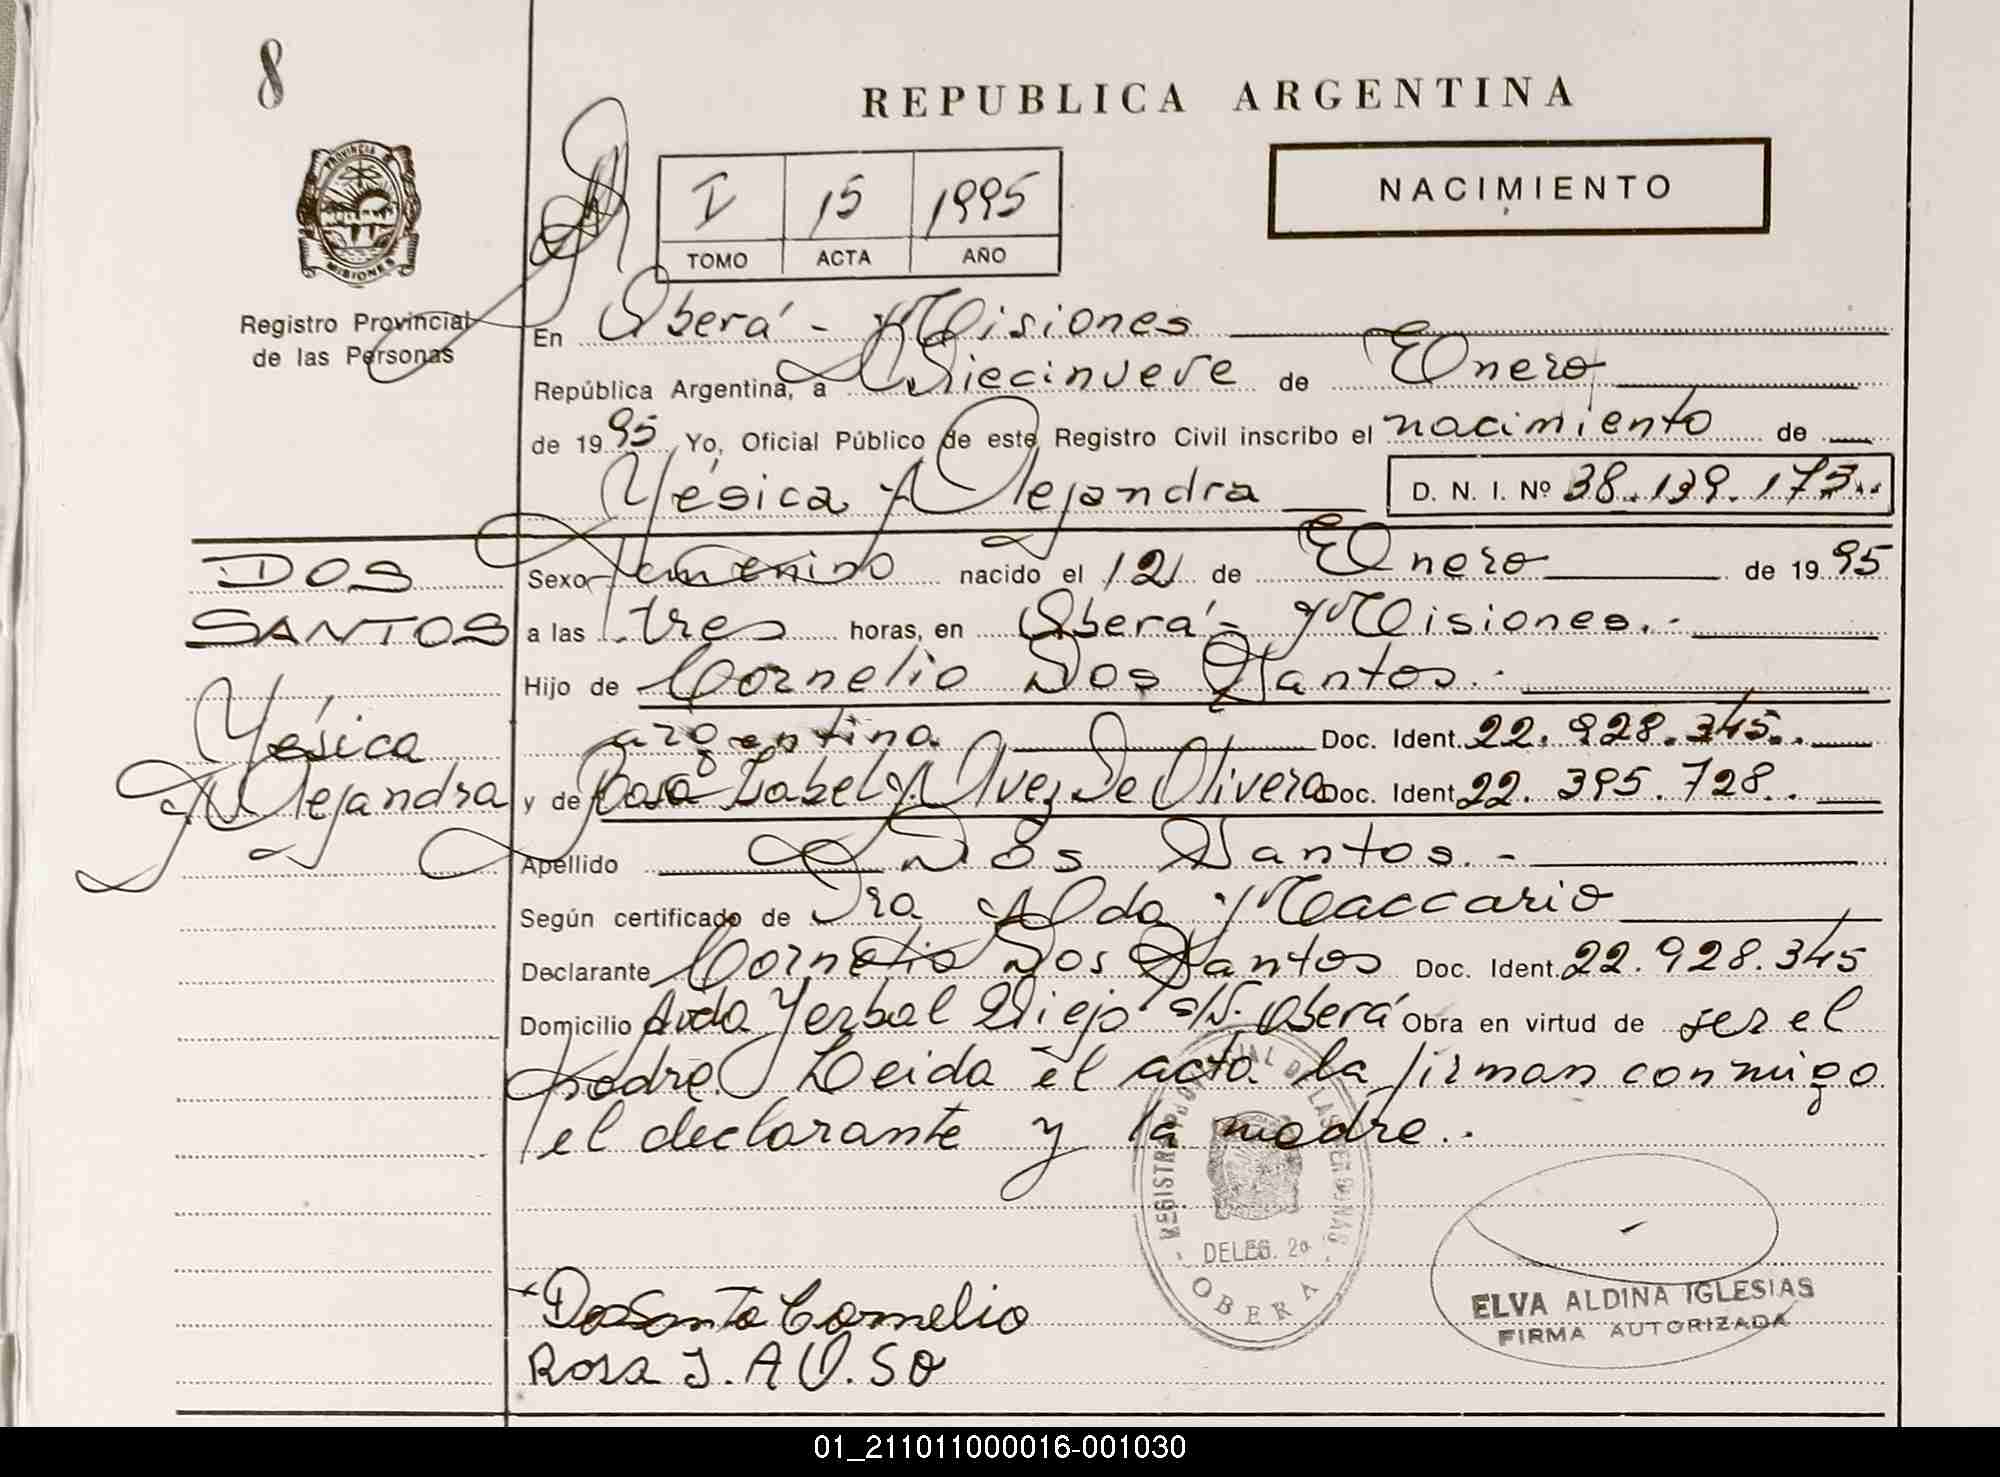 8
REPUBLICA ARGENTINA
PROVINCIA DE
MISIONES
Registro Provincial
de las Personas
I 15 1995
TOMO ACTA AÑO
NACIMIENTO
En Oberá - Misiones
República Argentina, a Diecinueve de Enero
de 1995 Yo, Oficial Público de este Registro Civil inscribo el nacimiento de
Yésica Alejandra D. N. I. Nº 38.139.173..
DOS
SANTOS
Yésica
Alejandra
Sexo Femenino nacido el 12 de Enero de 1995
a las tres horas, en Oberá - Misiones.-
Hijo de Cornelio Dos Santos.-
argentina Doc. Ident. 22.928.345..
y de Rosa Isabel Alvez De Olivera Doc. Ident. 22.395.728..
Apellido Dos Santos.-
Según certificado de Dra Alda Maccario
Declarante Cornelio Dos Santos Doc. Ident. 22.928.345
Domicilio Avda Yerbal Viejo s/N. Oberá Obra en virtud de ser el
padre. Leida el acta la firman conmigo
el declarante y la madre..
REGISTRO PROVINCIAL DE LAS PERSONAS
DELEG. 2a
OBERA
ELVA ALDINA IGLESIAS
FIRMA AUTORIZADA
Dos Santo Cornelio
Rosa I. A O. SO
01_211011000016-001030